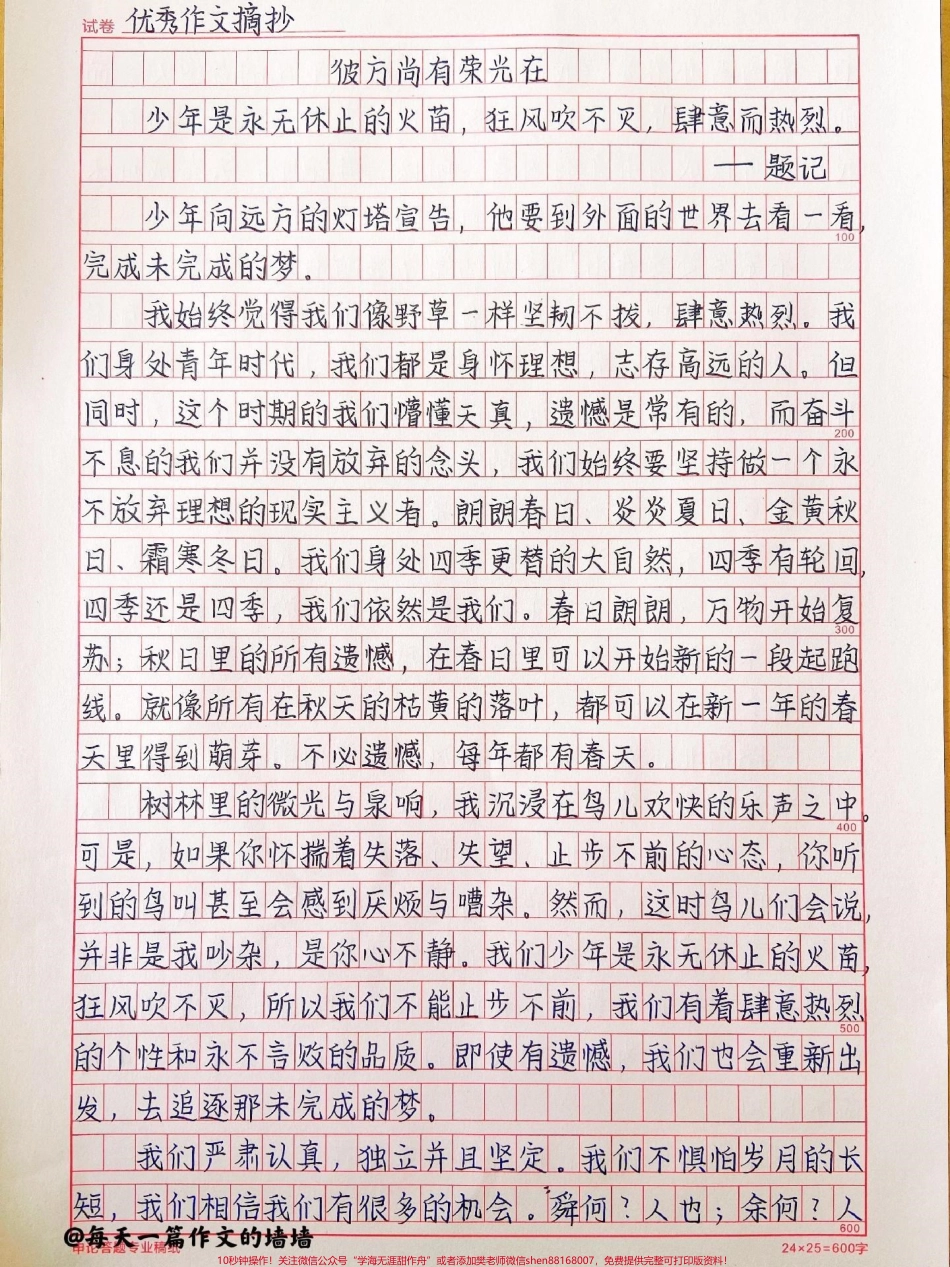 试卷 优秀作文摘抄
彼方尚有荣光在
少年是永无休止的火苗，狂风吹不灭，肆意而热烈。
——题记
少年向远方的灯塔宣告，他要到外面的世界去看一看，
100
完成未完成的梦。
我始终觉得我们像野草一样坚韧不拔，肆意热烈。我
们身处青年时代，我们都是身怀理想，志存高远的人。但
同时，这个时期的我们懵懂天真，遗憾是常有的，而奋斗
200
不息的我们并没有放弃的念头，我们始终要坚持做一个永
不放弃理想的现实主义者。朗朗春日、炎炎夏日、金黄秋
日、霜寒冬日。我们身处四季更替的大自然，四季有轮回，
四季还是四季，我们依然是我们。春日朗朗，万物开始复
300
苏；秋日里的所有遗憾，在春日里可以开始新的一段起跑
线。就像所有在秋天的枯黄的落叶，都可以在新一年的春
天里得到萌芽。不必遗憾，每年都有春天。
树林里的微光与泉响，我沉浸在鸟儿欢快的乐声之中。
400
可是，如果你怀揣着失落、失望、止步不前的心态，你听
到的鸟叫甚至会感到厌烦与嘈杂。然而，这时鸟儿们会说，
并非是我吵杂，是你心不静。我们少年是永无休止的火苗，
狂风吹不灭，所以我们不能止步不前，我们有着肆意热烈
500
的个性和永不言败的品质。即使有遗憾，我们也会重新出
发，去追逐那未完成的梦。
我们严肃认真，独立并且坚定。我们不惧怕岁月的长
短，我们相信我们有很多的机会。舜何？人也；余何？人
600
@每天一篇作文的墙墙
申论答题专业稿纸 24×25=600字
10秒钟操作！关注微信公众号“学海无涯甜作舟”或者添加樊老师微信shen88168007，免费提供完整可打印版资料！